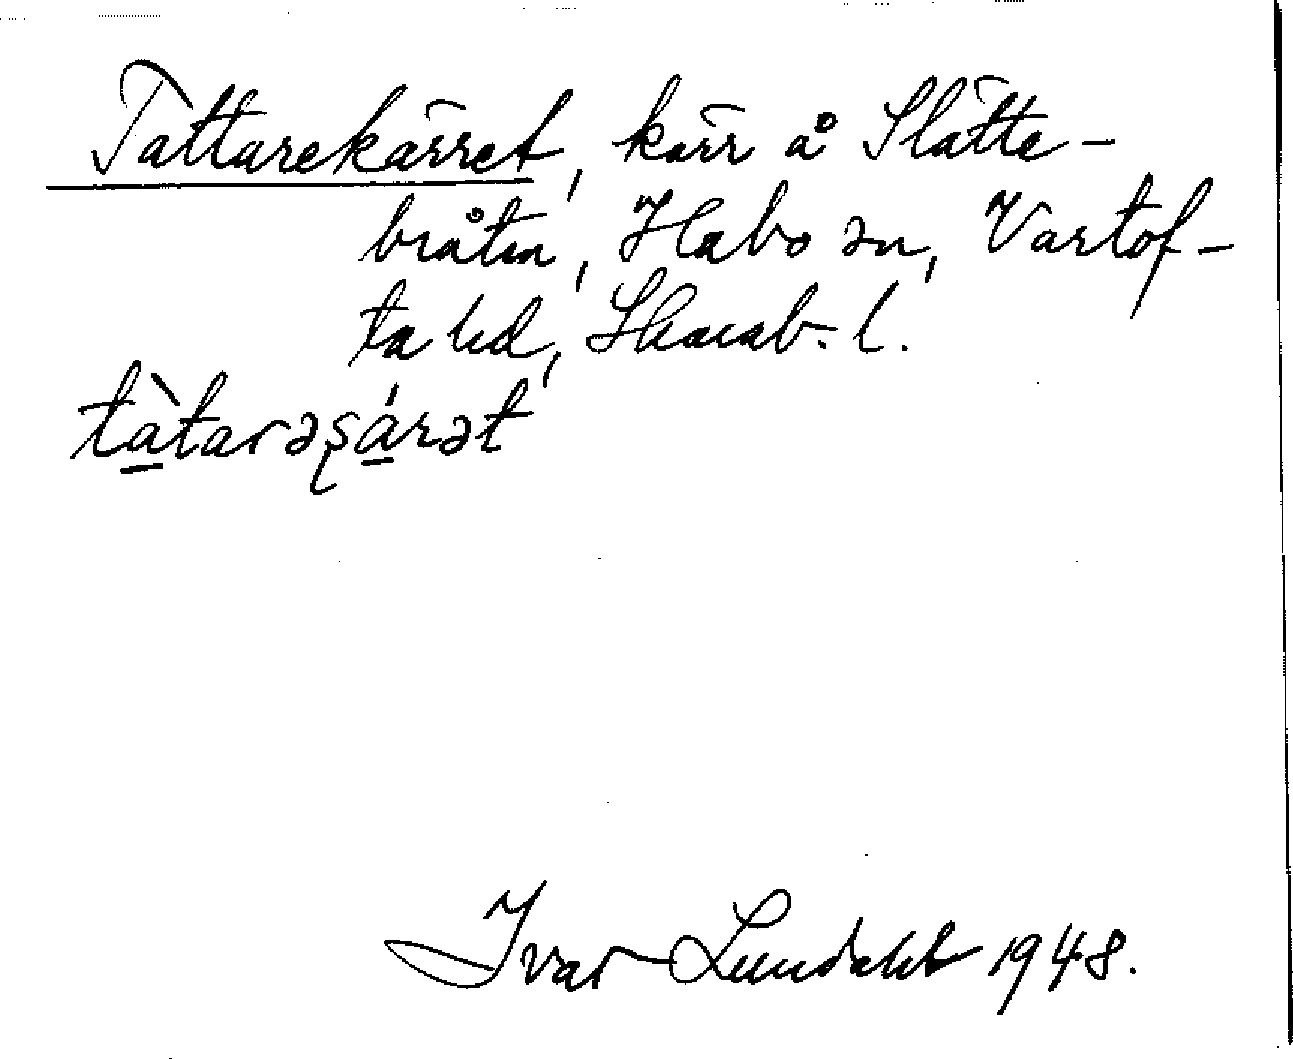 Tattarekärret, kärr å Slätte-
bråten, Habo sn, Vartof-
ta hd, Skarab. l.
tàtarəʂárət
Ivar Lundahl 1948.